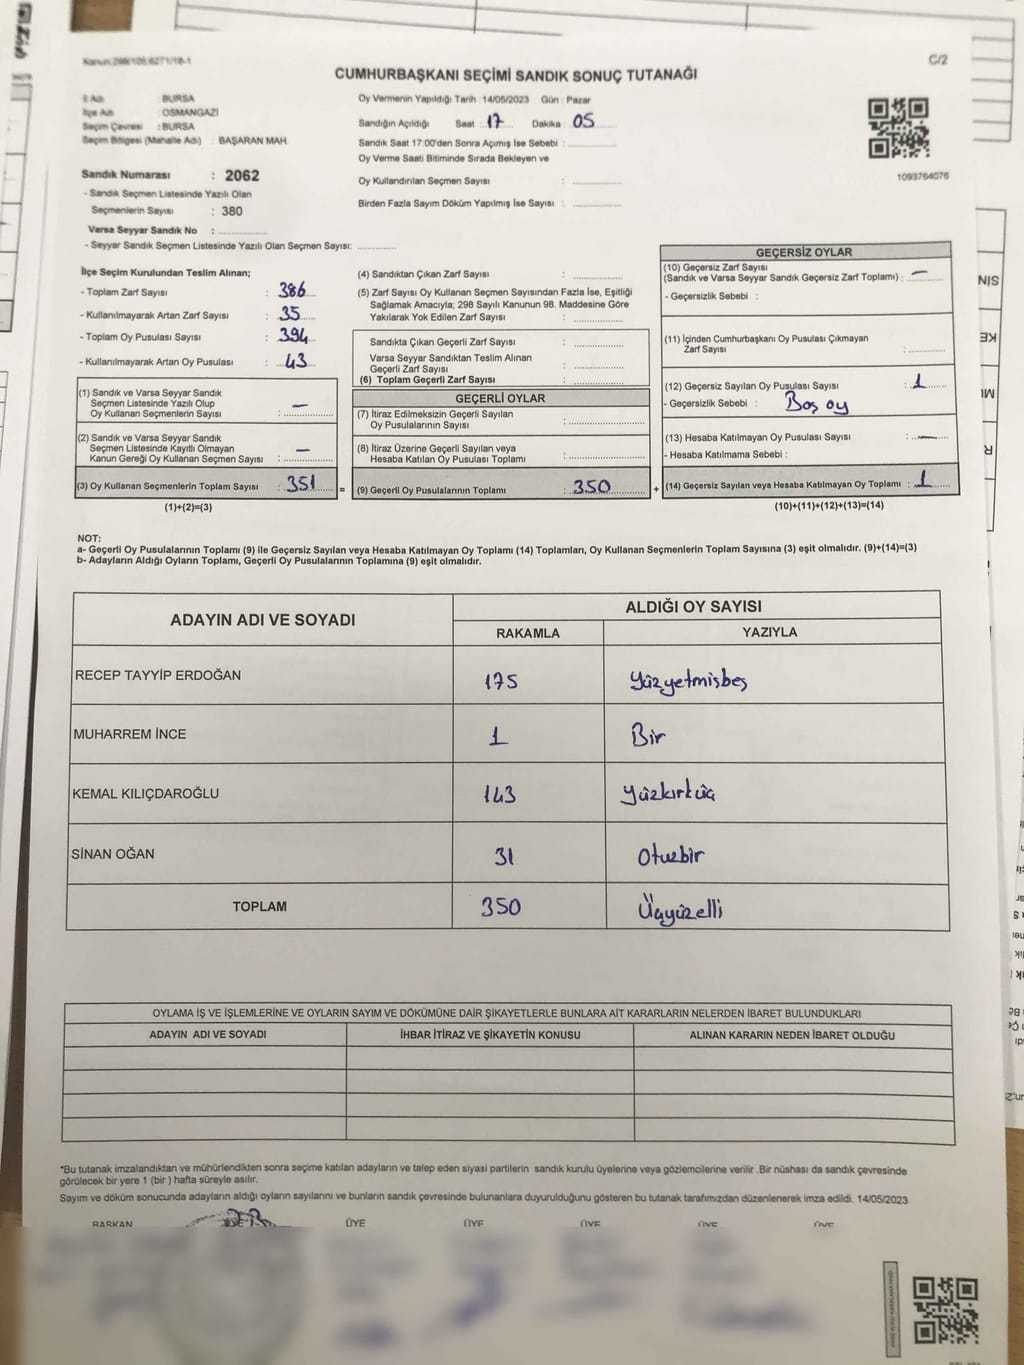 Kanun:298/105,6271/18-1
C/2
CUMHURBAŞKANI SEÇİMİ SANDIK SONUÇ TUTANAĞI
İl Adı : BURSA
İlçe Adı : OSMANGAZİ
Seçim Çevresi : BURSA
Seçim Bölgesi (Mahalle Adı) : BAŞARAN MAH
Oy Vermenin Yapıldığı Tarih :14/05/2023 Gün : Pazar
Sandığın Açıldığı Saat : 17 Dakika : 05
Sandık Saat 17:00'den Sonra Açımış İse Sebebi :
Oy Verme Saati Bitiminde Sırada Bekleyen ve
Oy Kullandırılan Seçmen Sayısı :
Birden Fazla Sayım Döküm Yapılmış İse Sayısı :
1093764076
Sandık Numarası : 2062
- Sandık Seçmen Listesinde Yazılı Olan
Seçmenlerin Sayısı : 380
Varsa Seyyar Sandık No :
- Seyyar Sandık Seçmen Listesinde Yazılı Olan Seçmen Sayısı:
İlçe Seçim Kurulundan Teslim Alınan;
- Toplam Zarf Sayısı : 386
- Kullanılmayarak Artan Zarf Sayısı : 35
- Toplam Oy Pusulası Sayısı : 394
- Kullanılmayarak Artan Oy Pusulası : 43
(1) Sandık ve Varsa Seyyar Sandık
Seçmen Listesinde Yazılı Olup
Oy Kullanan Seçmenlerin Sayısı : —
(2) Sandık ve Varsa Seyyar Sandık
Seçmen Listesinde Kayıtlı Olmayan
Kanun Gereği Oy Kullanan Seçmen Sayısı : —
(3) Oy Kullanan Seçmenlerin Toplam Sayısı : 351 =
(1)+(2)=(3)
(4) Sandıktan Çıkan Zarf Sayısı :
(5) Zarf Sayısı Oy Kullanan Seçmen Sayısından Fazla İse, Eşitliği
Sağlamak Amacıyla; 298 Sayılı Kanunun 98. Maddesine Göre
Yakılarak Yok Edilen Zarf Sayısı :
Sandıkta Çıkan Geçerli Zarf Sayısı :
Varsa Seyyar Sandıktan Teslim Alınan
Geçerli Zarf Sayısı :
(6) Toplam Geçerli Zarf Sayısı :
GEÇERLİ OYLAR
(7) İtiraz Edilmeksizin Geçerli Sayılan
Oy Pusulalarının Sayısı :
(8) İtiraz Üzerine Geçerli Sayılan veya
Hesaba Katılan Oy Pusulası Toplamı :
(9) Geçerli Oy Pusulalarının Toplamı : 350 +
GEÇERSİZ OYLAR
(10) Geçersiz Zarf Sayısı
(Sandık ve Varsa Seyyar Sandık Geçersiz Zarf Toplamı) : —
- Geçersizlik Sebebi :
(11) İçinden Cumhurbaşkanı Oy Pusulası Çıkmayan
Zarf Sayısı :
(12) Geçersiz Sayılan Oy Pusulası Sayısı : 1
- Geçersizlik Sebebi : Boş oy
(13) Hesaba Katılmayan Oy Pusulası Sayısı : —
- Hesaba Katılmama Sebebi :
(14) Geçersiz Sayılan veya Hesaba Katılmayan Oy Toplamı : 1
(10)+(11)+(12)+(13)=(14)
NOT:
a- Geçerli Oy Pusulalarının Toplamı (9) ile Geçersiz Sayılan veya Hesaba Katılmayan Oy Toplamı (14) Toplamları, Oy Kullanan Seçmenlerin Toplam Sayısına (3) eşit olmalıdır. (9)+(14)=(3)
b- Adayların Aldığı Oyların Toplamı, Geçerli Oy Pusulalarının Toplamına (9) eşit olmalıdır.
ADAYIN ADI VE SOYADI
ALDIĞI OY SAYISI
RAKAMLA YAZIYLA
RECEP TAYYİP ERDOĞAN 175 Yüzyetmişbeş
MUHARREM İNCE 1 Bir
KEMAL KILIÇDAROĞLU 143 Yüzkırküç
SİNAN OĞAN 31 Otuzbir
TOPLAM 350 Üçyüzelli
OYLAMA İŞ VE İŞLEMLERİNE VE OYLARIN SAYIM VE DÖKÜMÜNE DAİR ŞİKAYETLERLE BUNLARA AİT KARARLARIN NELERDEN İBARET BULUNDUKLARI
ADAYIN ADI VE SOYADI İHBAR İTİRAZ VE ŞİKAYETİN KONUSU ALINAN KARARIN NEDEN İBARET OLDUĞU
*Bu tutanak imzalandıktan ve mühürlendikten sonra seçime katılan adayların ve talep eden siyasi partilerin sandık kurulu üyelerine veya gözlemcilerine verilir .Bir nüshası da sandık çevresinde
görülecek bir yere 1 (bir ) hafta süreyle asılır.
Sayım ve döküm sonucunda adayların aldığı oyların sayılarını ve bunların sandık çevresinde bulunanlara duyurulduğunu gösteren bu tutanak tarafımızdan düzenlenerek imza edildi. 14/05/2023
BAŞKAN ÜYE ÜYE ÜYE ÜYE ÜYE